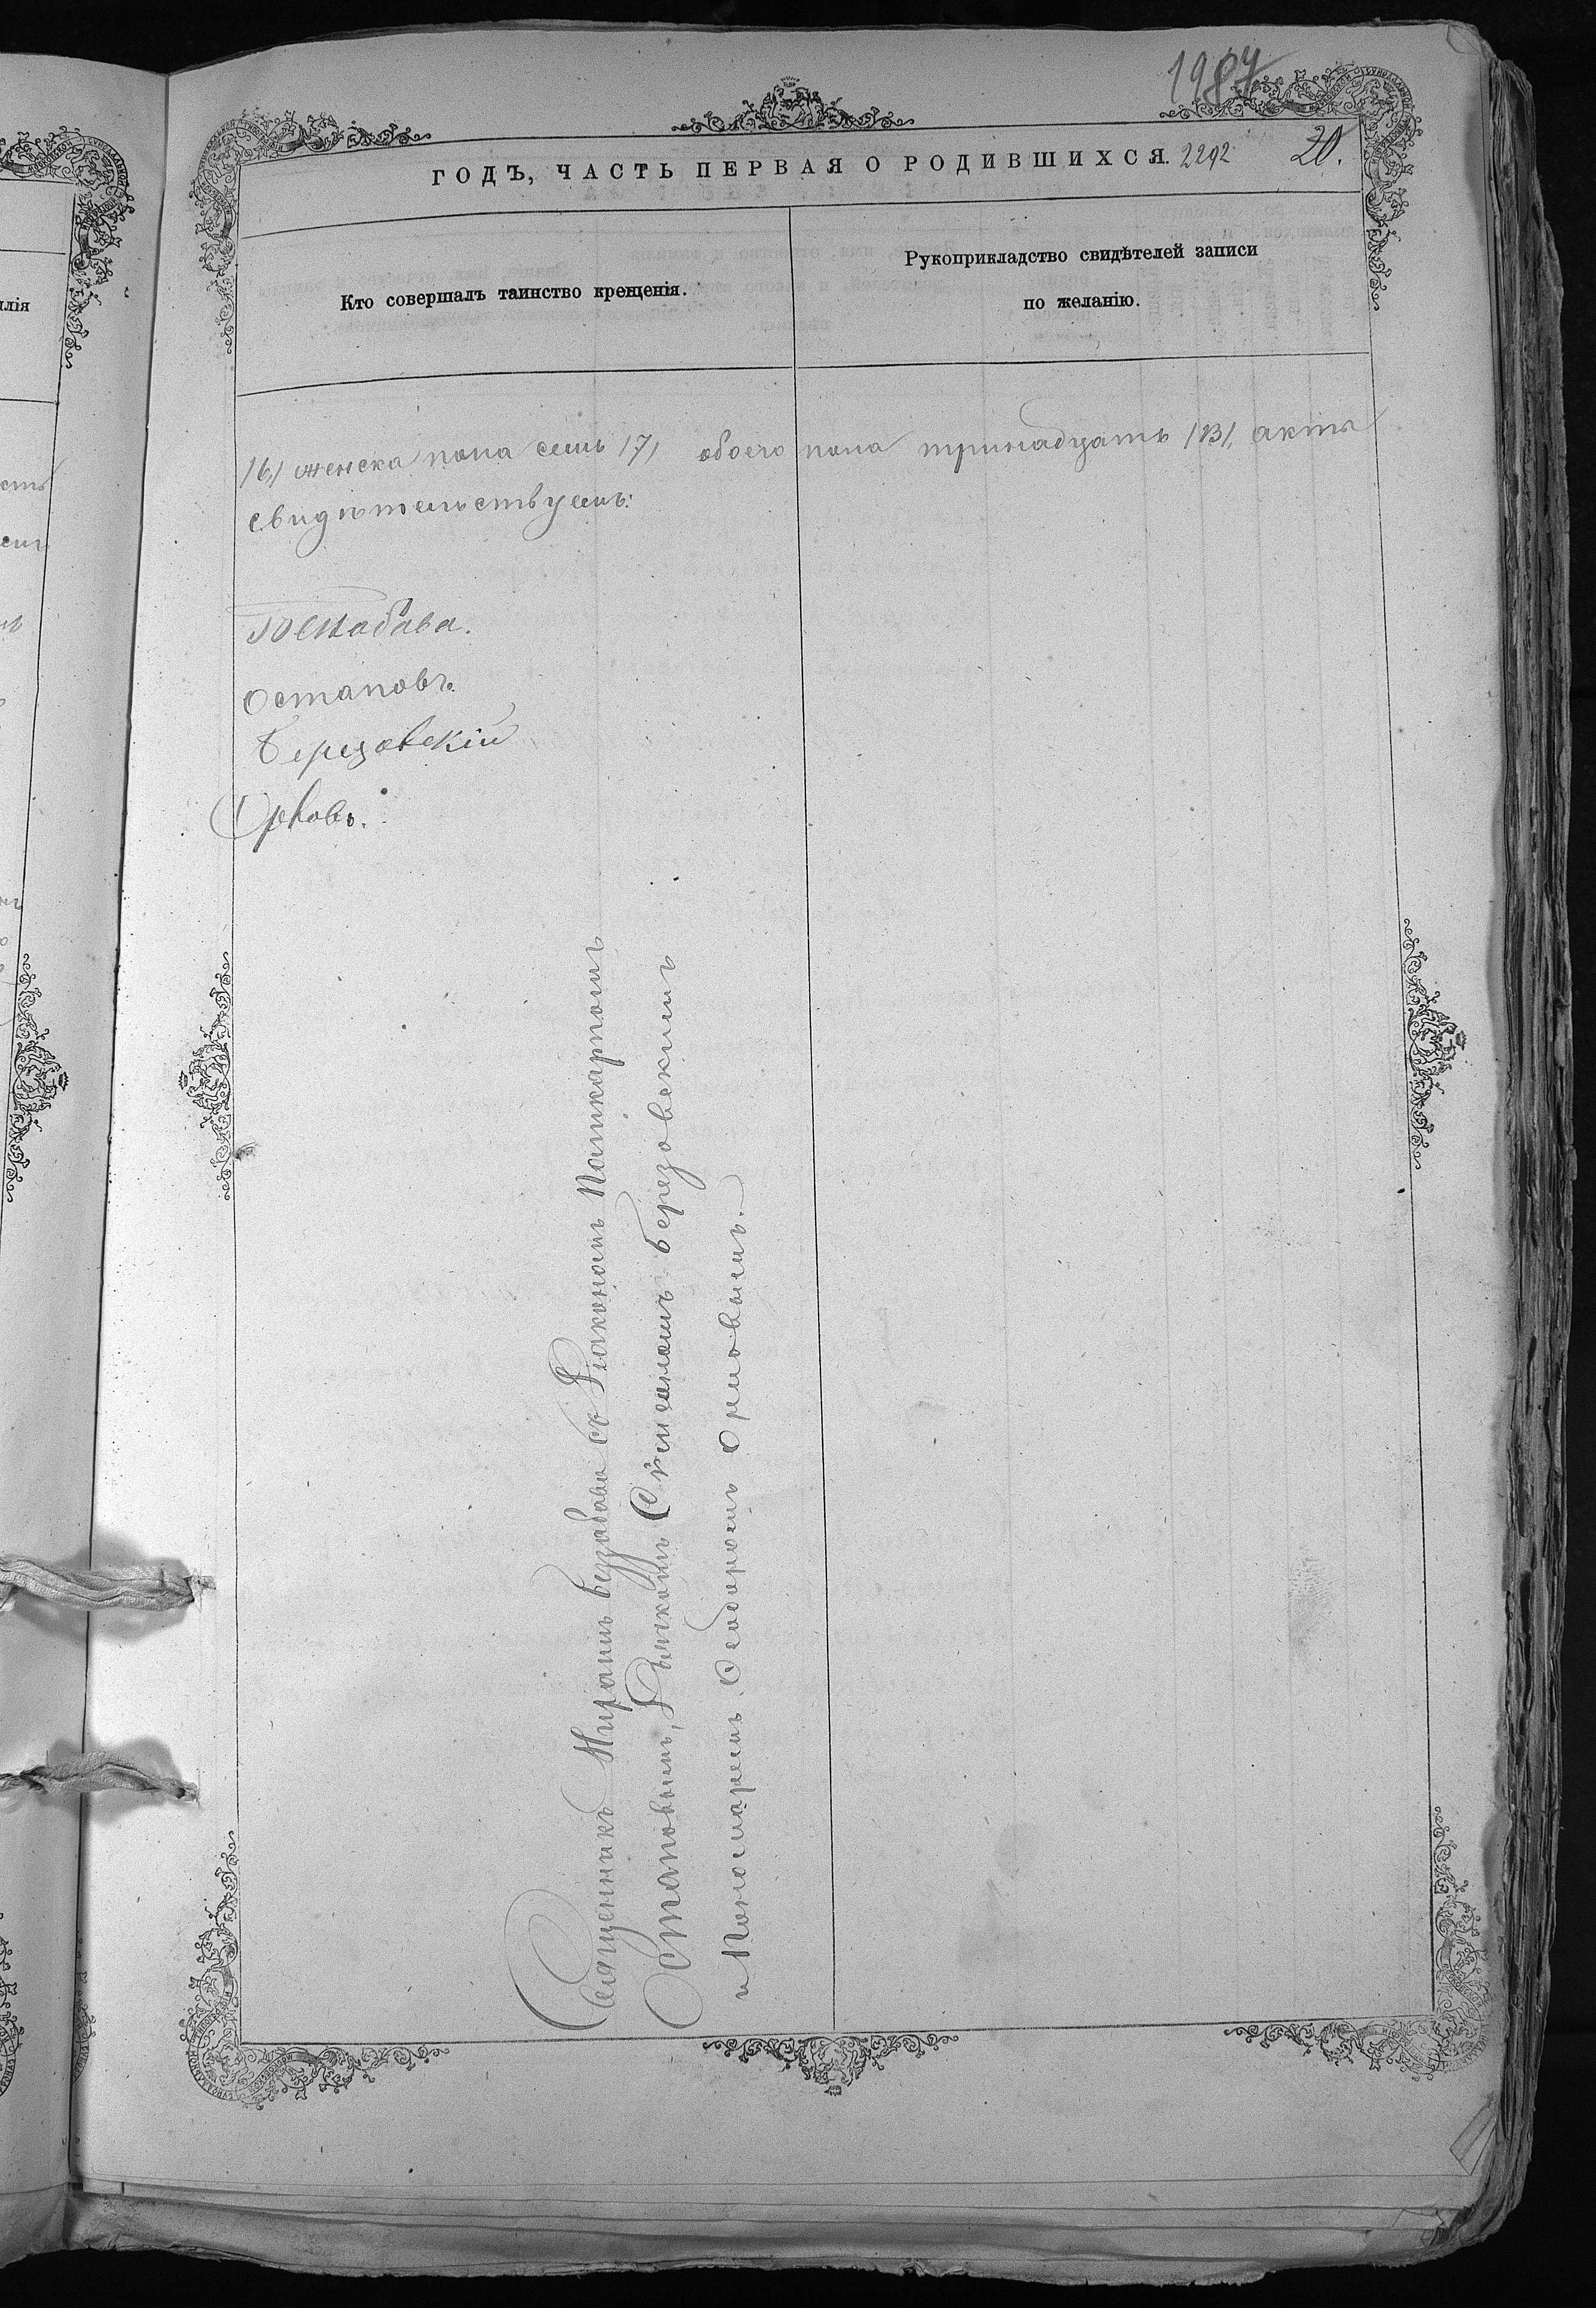 1987
ГОДЪ, ЧАСТЬ ПЕРВАЯ О РОДИВШИХСЯ. 2292 20.
Кто совершалъ таинство крещенія.
Рукоприкладство свидѣтелей записи
по желанію.
/6/ женска пола семь /7/ обоего пола тринадцать /13/, акта
свидѣтельствуемъ:
Остаповъ.
Березовскій
Орловъ.
Священникъ Миронъ Беззабава съ Діакономъ Поликарпомъ
Остаповымъ, Дьякомъ Симеономъ Березовскимъ
и Пономаремъ Ѳедоромъ Орловымъ.